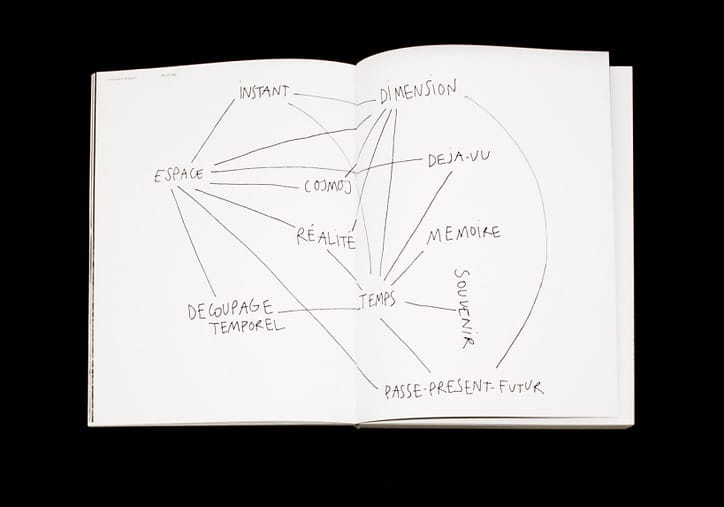 INSTANT
DIMENSION
DEJA-VU
ESPACE
COSMOS
RÉALITÉ
MEMOIRE
TEMPS
SOUVENIR
DECOUPAGE
TEMPOREL
PASSE-PRESENT-FUTUR